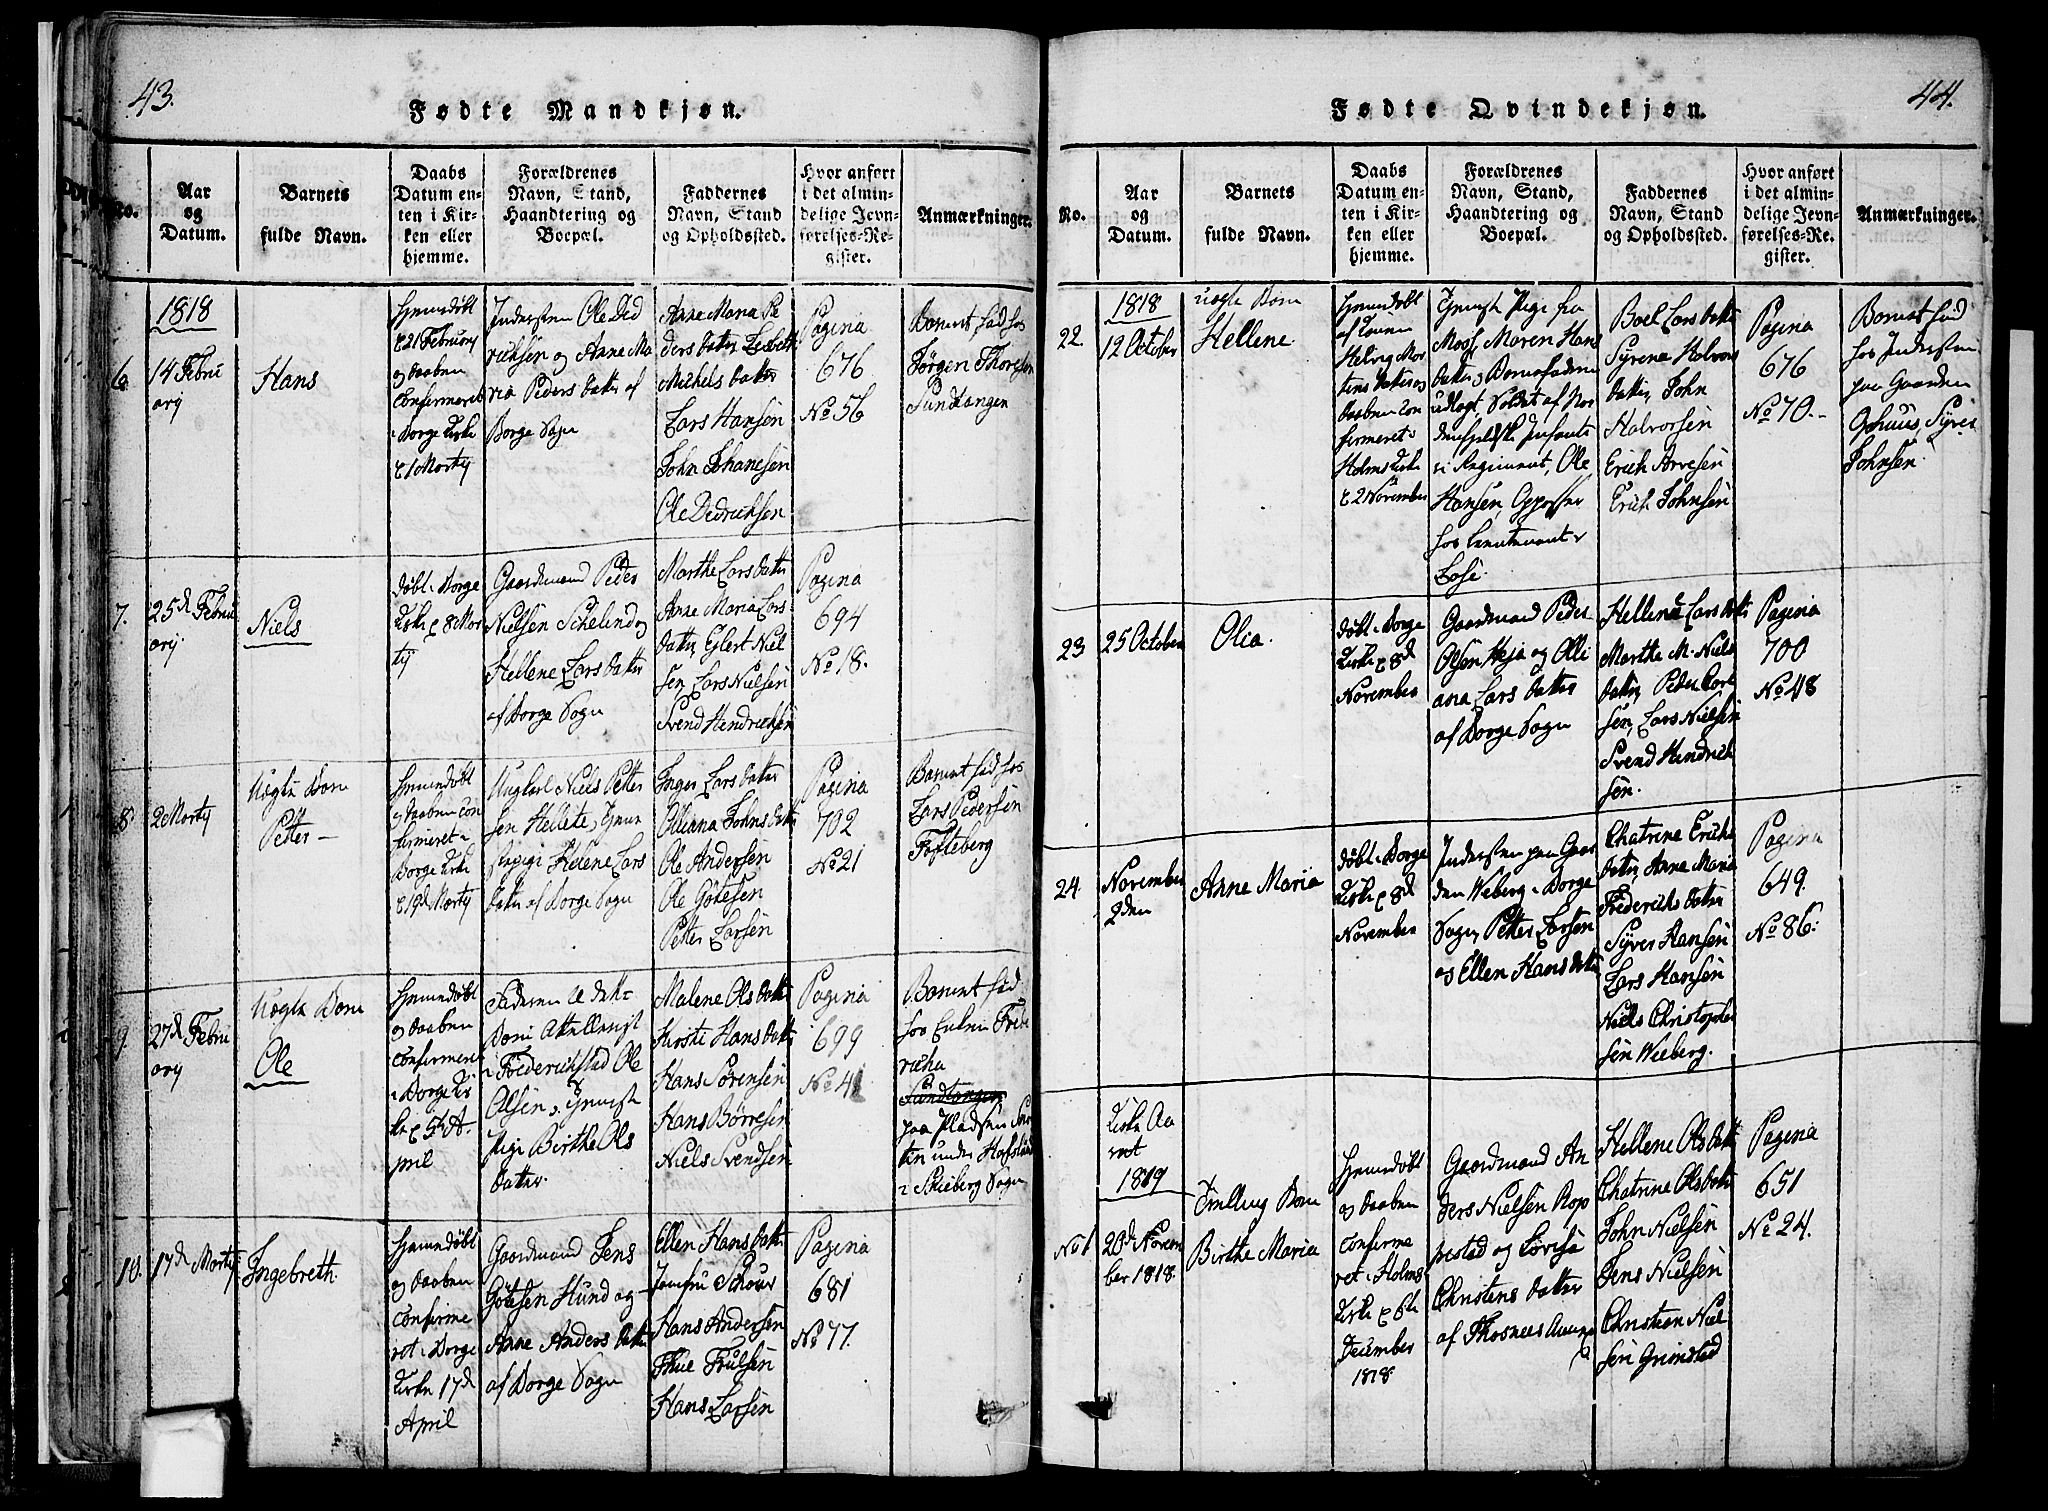 43.
Fødte Mandkjøn.
No.
Aar
og
Datum.
Barnets
fulde Navn.
Daabs
Datum en-
ten i Kir-
ken eller
hjemme.
Forældrenes
Navn, Stand,
Haandtering og
Boepæl.
Faddernes
Navn, Stand
og Opholdssted.
Hvor anført
i det almin-
delige Jevn-
førelses-Re-
gister.
Anmærkninger.
1818
6
14 Febru
arj
Hans
Hiemmedøbt
21 Februarj
og Daaben
Confirmeret
i Borge Kirke
1 Martj
Inderst Ole Did
richsen og Anne Ma
ria Peders datter af
Borge Sogn
Anne Maria Pe
ders datter, Lisbeth
Michels datter
Lars Hansen
John Johanesen
Ole Didrichsen
Pagina
676
No 56
Barnet fød hos
Jørgen Thoresen
Sundtangen
7.
25d Febru
arj
Niels
døbt i Borge
Kirke 8 Mar
tj
Gaardmand Peder
Nielsen Schelin og
Hellene Lars datter
af Borge Sogn
Marthe Lars datter
Anne Maria Lars
datter, Eylert Niel
sen, Lars Nielsen
Svend Hendrichsen
Pagina
694
No 18.
8
2 Martj
Uægte Barn
Petter
Hiemmedøbt
og Daaben Con
firmeret i
Borge Kirke
19d Martj
Ungkarl Niels Petter
sen Hellete,
pige Helene Lars
datter af Borge Sogn
Inger Lars datter
Olleana Johns datter
Ole Andersen
Ole Götesen
Petter Larsen
Pagina
702
No 21
Barnet fød hos
Lars Pedersen
Tofteberg
9.
27d Febru
arj
Uægte Barn
Ole
Hiemmedøbt
og Daaben
Confirmeret
i Borge Kir
ke 5t A
pril
Faderen
i Friderichstad Ole
Olsen,
Pige Birthe Ols
datter.
Malene Ols datter
Kirsti Hans datter
Hans Sørensen
Hans Børresen
Niels Svendsen
Pagina
699
No 41
Barnet fød
hos
Sundtangen
paa Pladsen
under
i Skieberg Sogn
10.
17d Martj
Ingebreth.
Hiemmedøbt
og Daaben
Confirme
ret i Borge
Kirke 17d
April
Gaardmand Jens
Götesen Hund og
Anne Anders datter
af Borge Sogn
Ellen Hans datter
Jomfru
Hans Andersen
Thue Trulsen
Hans Larsen
Pagina
681
No 77.
44.
Fødte Qvindekjøn.
No.
Aar
og
Datum.
Barnets
fulde Navn.
Daabs
Datum en-
ten i Kir-
ken eller
hjemme.
Forældrenes
Navn, Stand,
Haandtering og
Boepæl.
Faddernes
Navn, Stand
og Opholdssted.
Hvor anført
i det almin-
delige Jevn-
førelses-Re-
gister.
Anmærkninger.
1818
22.
12 October
uægte Barn
Hellene
Hiemmedøbt
af
Helvig Mor
tens datter og
Daaben Con
firmeret i
Holms Kirke
2 November
Pige fra
Moss, Maren Hans
datter, Barnefaderen
udlagt, Soldat af Nor
denfieldske Infante
ri Regiment, Ole
Hansen, Oppasser
hos Lieutenant
Boel Lars datter
Syrena Halvors
datter, John
Halvorsen
Erich Arvesen
Erich Johnsen
Pagina
676
No 70.
Barnet fød
hos Indersten
paa Gaarden
Syver
Johnsen.
23
25 October
Olia.
døbt i Borge
Kirke 8d
November
Gaardmand Peder
Olsen Heja og Olli
ana Lars datter
af Borge Sogn
Hellene Lars datter
Marthe M. Niels
datter, Peder Carl
sen, Lars Nielsen
Svend Hendrich
sen.
Pagina
700
No 48
24.
November
2den
Anne Maria
døbt i Borge
Kirke 8d
November
Indersten paa Gaar
den Weberg i Borge
Sogn, Petter Larsen
og Ellen Hans datter
Chatrine Erichs
datter, Anne Maria
Friderichs datter
Syver Hansen
Lars Hansen
Niels Christophe
sen Weeberg.
Pagina
649.
No 86.
Kirke Aa
ret
1819
No 1
20d Novem
ber 1818.
Tvilling Barn
Birthe Maria
Hiemmedøbt
og Daaben
Confirme
ret i Holms
Kirke 6te
December
1818.
Gaardmand An
ders Nielsen Rop
pestad og Lovise
Christens datter
af Thosnes
Hellene Ols datter
Chatrine Ols datter
John Nielsen
Jens Nielsen
Christian Niel
sen Grimstad
Pagina
651
No 24.